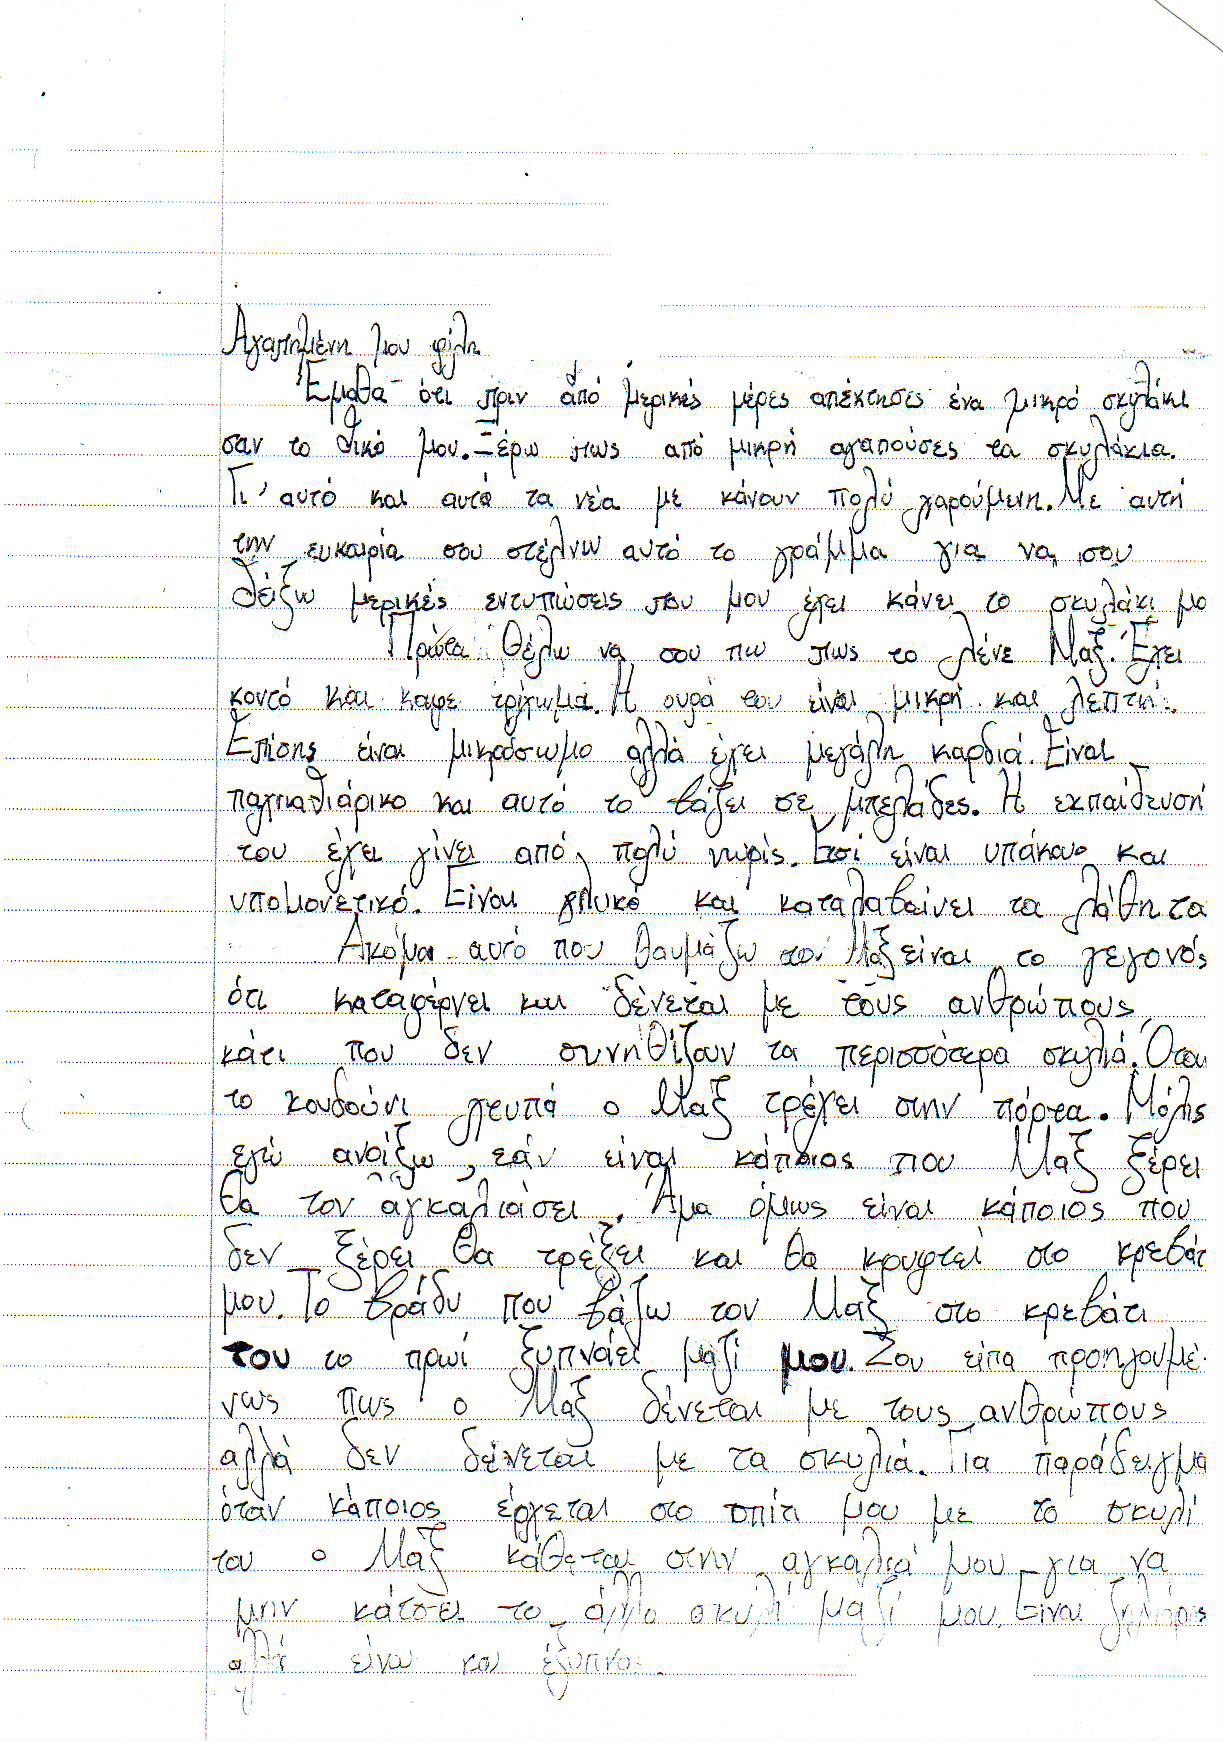 Αγαπημένη μου φίλη
Έμαθα ότι πριν από μερικές μέρες απέκτησες ένα μικρό σκυλάκι
σαν το δικό μου. Ξέρω πως από μικρή αγαπούσες τα σκυλάκια.
Γι' αυτό και αυτά τα νέα με κάνουν πολύ χαρούμενη. Με αυτή
την ευκαιρία σου στέλνω αυτό το γράμμα για να σου
δείξω μερικές εντυπώσεις που μου έχει κάνει το σκυλάκι μο
Πρώτα θέλω να σου πω πως το λένε Μαξ. Έχει
κοντό και καφέ τρίχωμα. Η ουρά του είναι μικρή και λεπτή.
Επίσης είναι μικρόσωμο αλλά έχει μεγάλη καρδιά. Είναι
παχνιδιάρικο και αυτό το βάζει σε μπελάδες. Η εκπαίδευσή
του έχει γίνει από πολύ νωρίς. Έτσι είναι υπάκουο και
υπομονετικό. Είναι γλυκό και καταλαβαίνει τα λάθη τα
Ακόμα αυτό που θαυμάζω στο Μαξ είναι το γεγονός
ότι καταφέρνει και δένεται με τους ανθρώπους
κάτι που δεν συνηθίζουν τα περισσότερα σκυλιά. Όταν
το κουδούνι χτυπά ο Μαξ τρέχει στην πόρτα. Μόλις
εγώ ανοίξω, εάν είναι κάποιος που Μαξ ξέρει
θα τον αγκαλιάσει. Άμα όμως είναι κάποιος που
δεν ξέρει θα τρέξει και θα κρυφτεί στο κρεβάτ
μου. Το βράδυ που βάζω τον Μαξ στο κρεβάτι
του το πρωί ξυπνάει μαζί μου. Σου είπα προηγουμέ-
νως πως ο Μαξ δένεται με τους ανθρώπους
αλλά δεν δένεται με τα σκυλιά. Για παράδειγμα
όταν κάποιος έρχεται στο σπίτι μου με το σκυλί
του ο Μαξ κάθεται στην αγκαλιά μου για να
μην κάτσει το άλλο σκυλί μαζί μου. Είναι ζηλιάρης
αλλά είναι και έξυπνος.